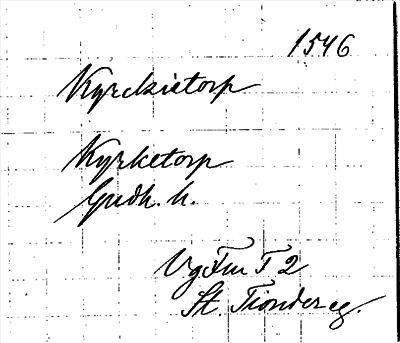 1546
Kyrckietorp
Kyrketorp
Gudh. h.
Vg Fur T 2
St. Tiondereg.